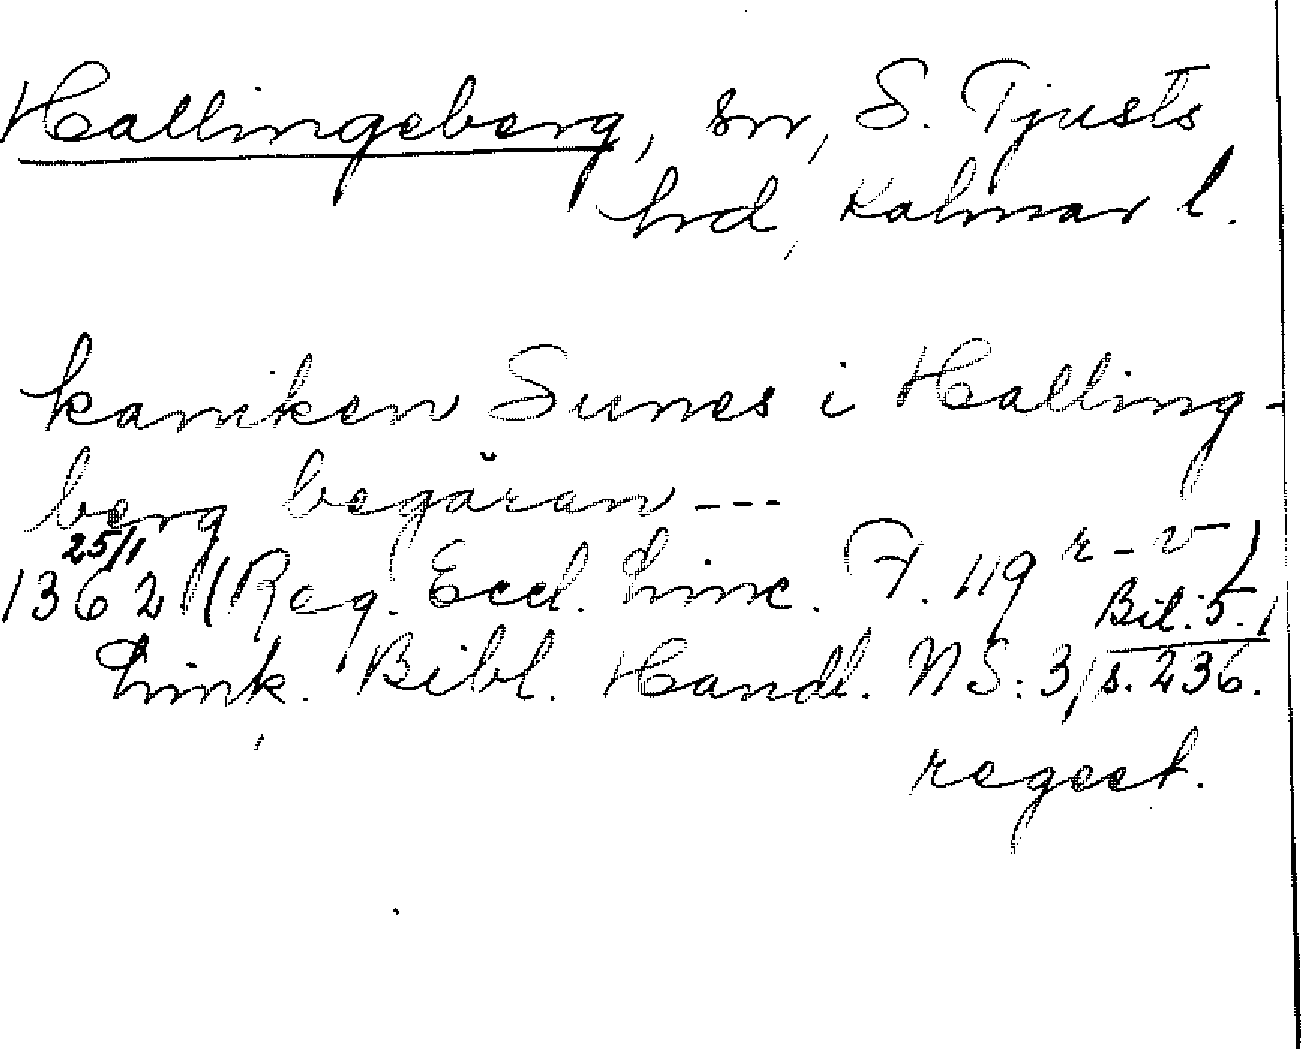 Hallingeberg, sn, S. Tjusts
hd, Kalmar l.
kaniken Sunes i Halling-
berg begäran ---
25/1
1362 (Reg. Eccl. Linc. F. 119 r-v)
Bil. 5.,
Link. Bibl. Handl. NS: 3, s. 236.
regest.